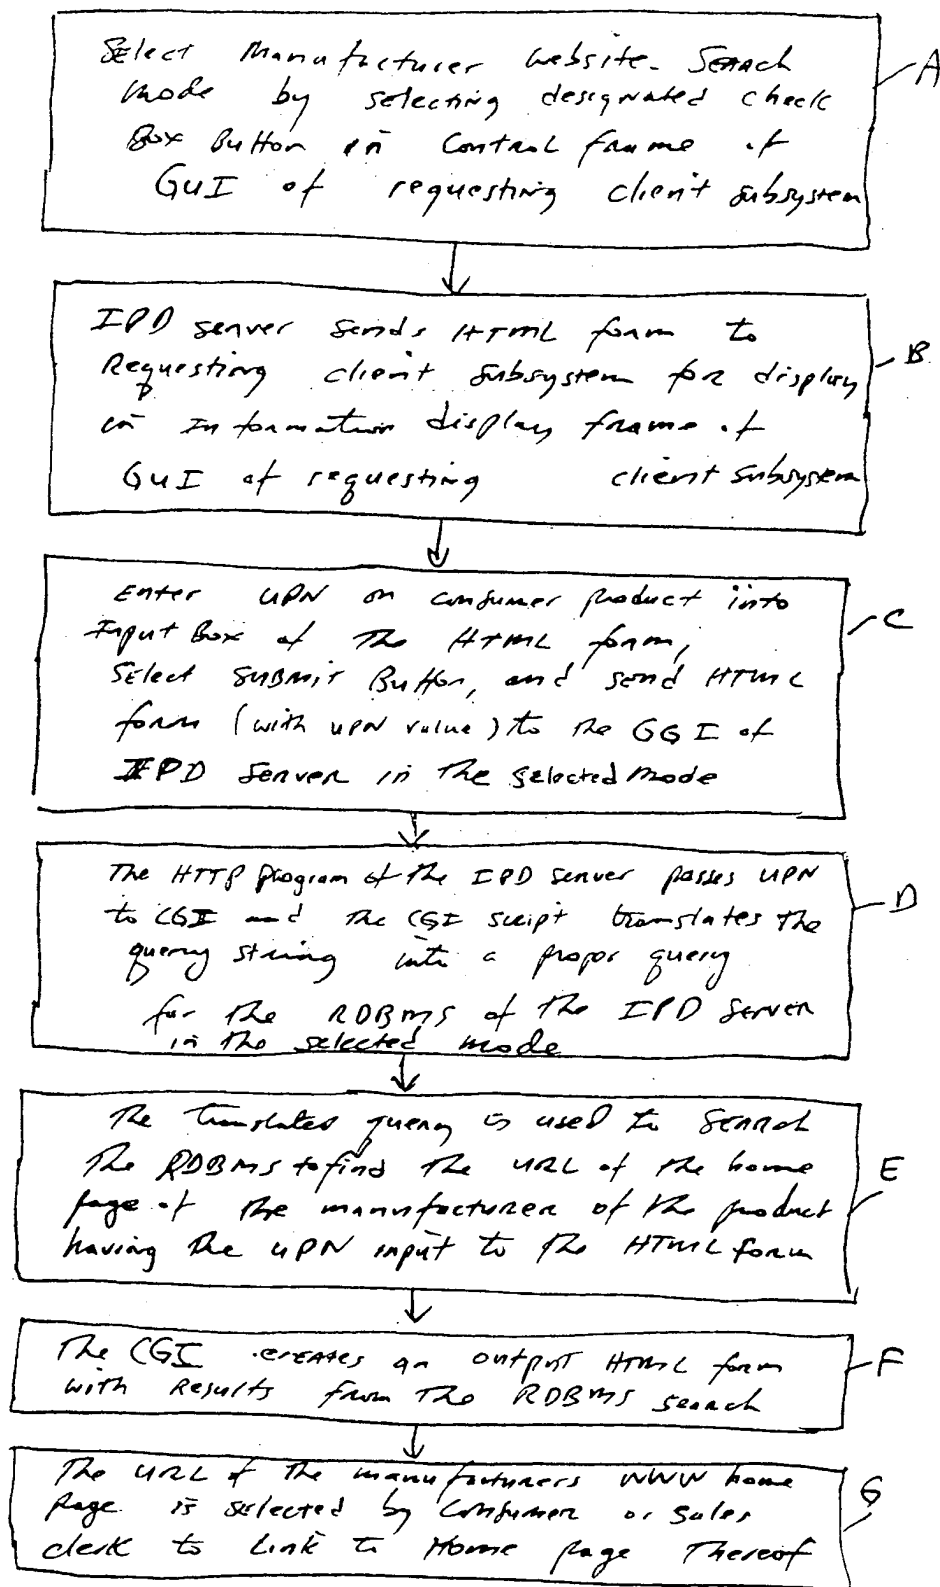 Select Manufacturer Website Search
mode by selecting designated check
Box Button in Control frame of
GUI of requesting client subsystem
A
IPD server sends HTML form to
Requesting client subsystem for display
in Information display frame of
GUI of requesting client subsystem
B
Enter UPN on consumer product into
Input Box of the HTML form,
Select SUBMIT Button, and send HTML
form (with UPN value) to the GGI of
IPD Server in the selected mode
C
The HTTP program of the IPD server passes UPN
to CGI and the CGI script translates the
query string into a proper query
for the RDBMS of the IPD Server
in the selected mode
D
The translated query is used to Search
the RDBMS to find the URL of the home
page of the manufacturer of the product
having the UPN input to the HTML form
E
The CGI creates an output HTML form
with Results from the RDBMS search
F
The URL of the manufacturers WWW home
Page is selected by Consumer or sales
clerk to Link to Home page Thereof
G